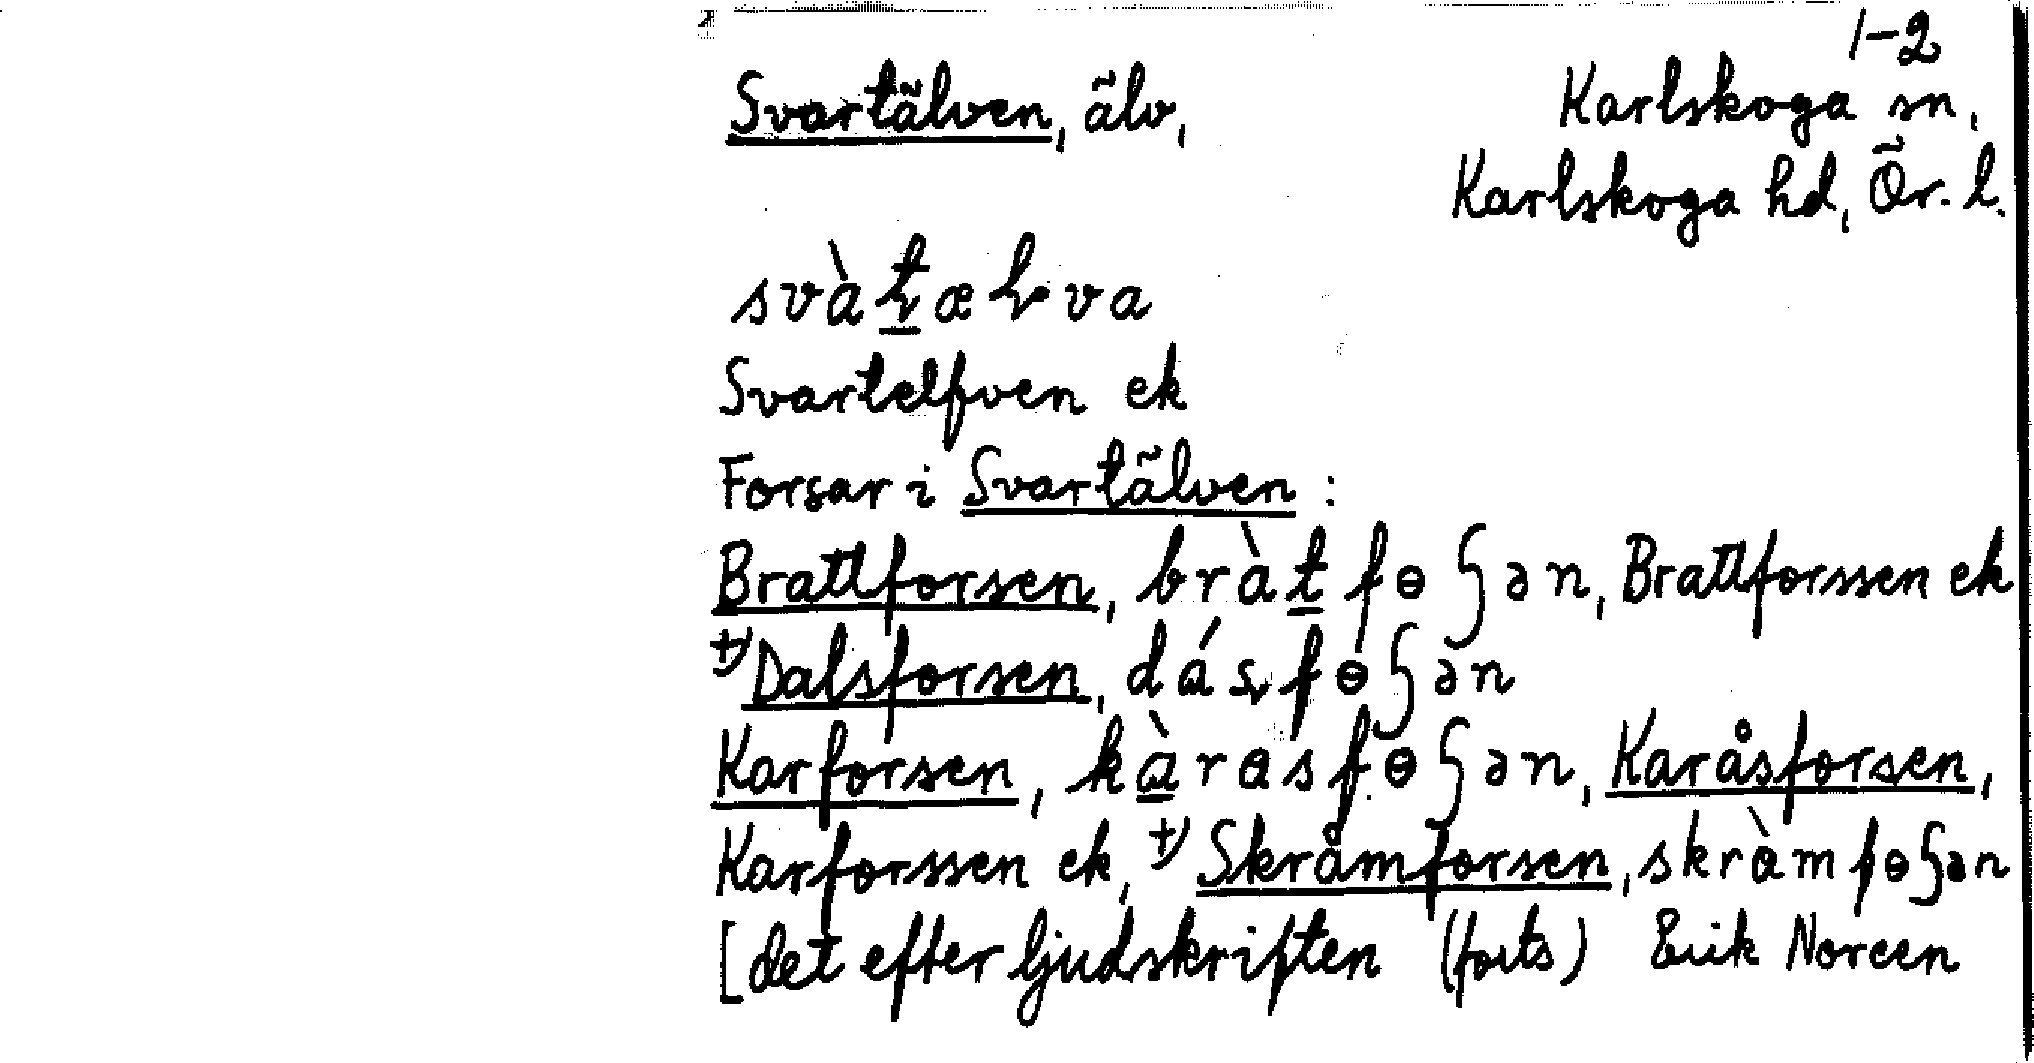 1-2
Svartälven, älv, Karlskoga sn,
Karlskoga hd, Ör. l.
Svartelfven ek
Forsar i Svartälven:
Brattforsen, bràt fɵʃən, Brattforssen ek
†) Dalsforsen,
Karforsen, kàrɑsfɵʃən, Karåsforsen,
Karforssen ek, †) Skråmforsen, skràmfɵʃən
[det efter ljudskriften (forts) Erik Noreen